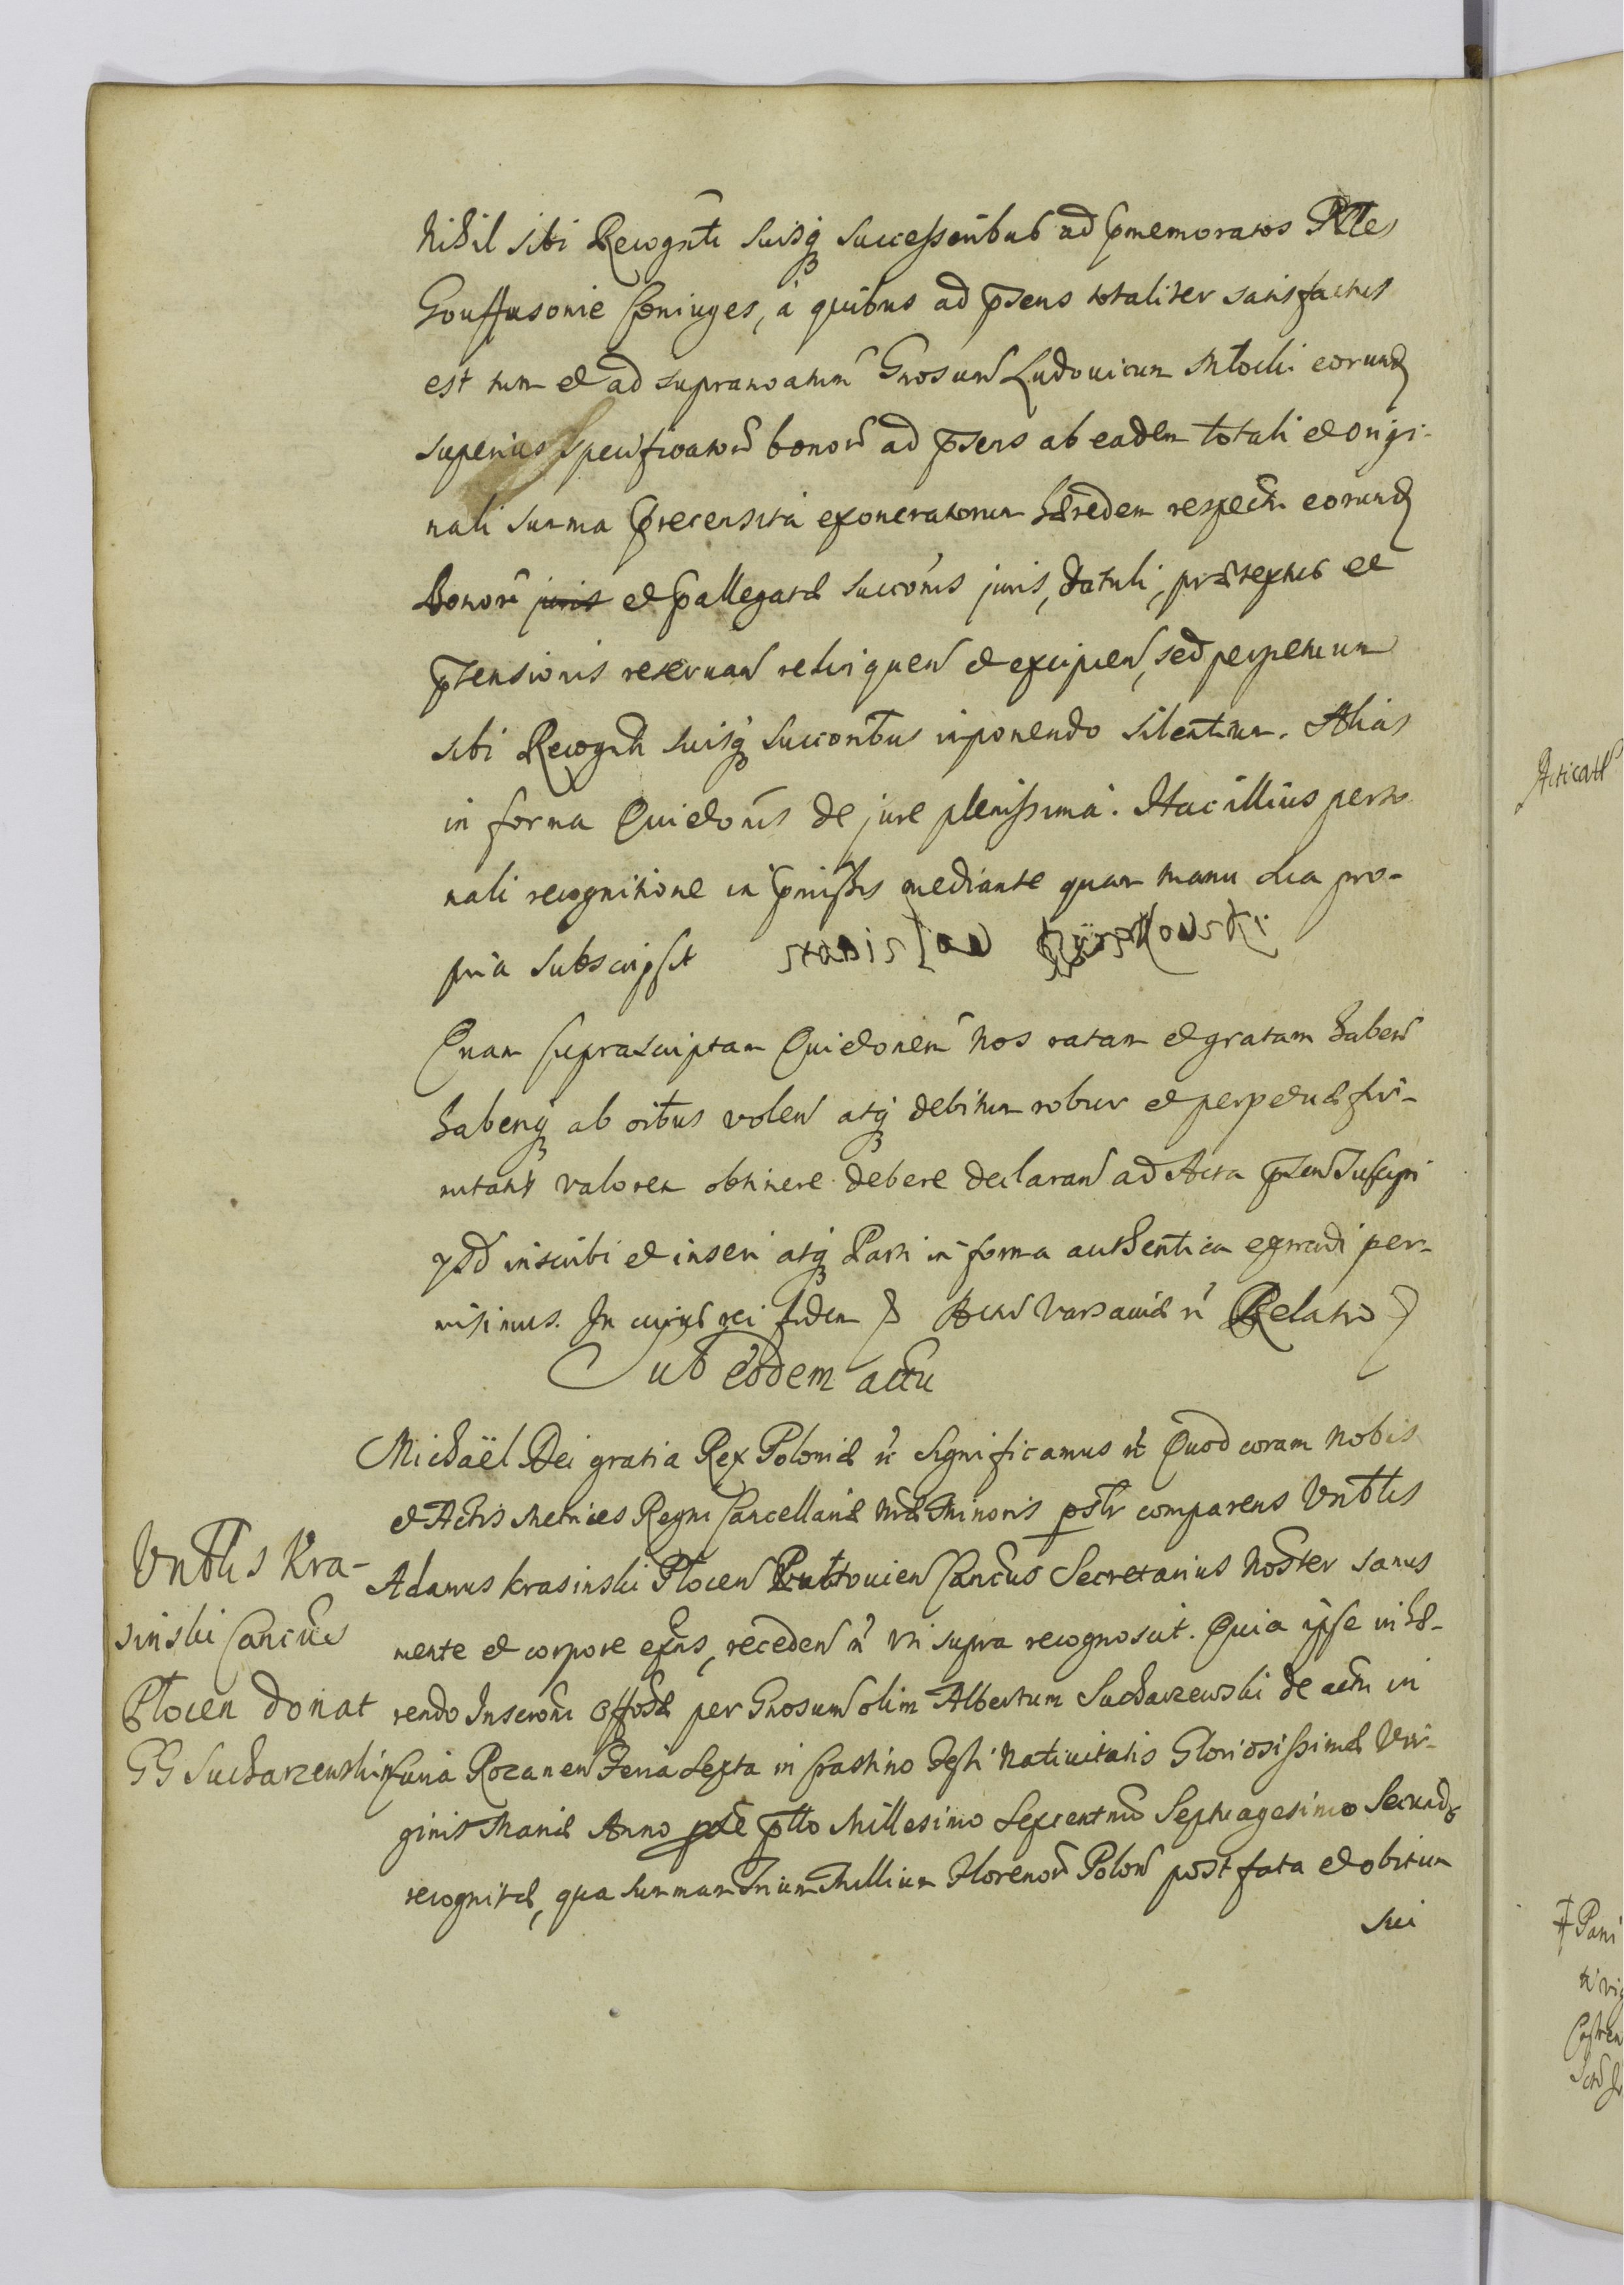 Nihil sibi Recognti suisq successoribus ad pmemoratos
Gouffusonie Coniuges, á quibus ad psens totaliter satisfactus
est tum et ad supranoatum Gnosum Ludouicum Mlocki eorund
superius specificatoru bonoru ad psens ab eadem totali et origi-
nali summa precensita exoneratorum Hæredem respectu eorund
Bonoru juris et pallegatæ succonis juris, tituli, prætextus et
ptensionis reseruan relinquen et excipien, sed perpetuum
sibi Recognti suisq succoribus imponendo silentium. Alias
in forma Quietonis de jure plenissima. Hac illius perso
nali recognitione in pmissis mediante quam manu sua pro-
pria subscripsit Stanislaw
Quam suprascriptam Quietonem Nos ratam et gratam haben
haberiq ab oibus volen atq debitum robur et perpetuæ fir-
mitatis valorem obtinere debere declaran ad Acta psen suscipi
inscribi et inseri atq Parti in forma authentica extradi per-
misimus. In cujus rei fidem Actu Varsauiæ &c Relatio
Sub eodem actu
Michaël Dei gratia Rex Poloniæ &c Significamus &c Quod coram Nobis
et Actis Metrices Regni Cancellariæ Nræ Minoris psltr comparens Vnblis
Adamus Krasinski Plocen Pultouien Cancus Secretarius Noster sanus
mente et corpore exns, receden &c vti supra recognoscit. Quia ipse inhæ-
rendo Inscroni Offosæ per Gnosum olim Albertum Sucharzewski de actu in
Curia Rozanen Feria Sexta in Crastino Festi Natiuitatis Gloriosissimæ Vir-
ginis Mariæ Anno ptto Millesimo Sexcentmo Septuagesimo Secundo
recognitæ, qua summam Trium Millium Florenoru Polon post fata et obitum
sui
Vnblis Kra-
sinski Cancus
Plocen donat
GG Sucharzewskim
Acticatæ
Pani